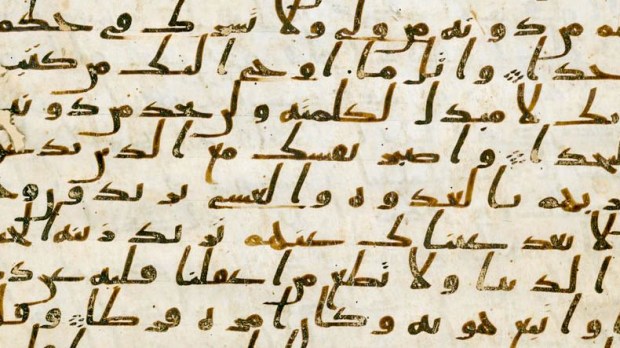 من دونه من ولي ولا تشرك في حكم
حدا واتل ما اوحي اليك من كتب
ك لا مبدل لكلمته ولن تجد من دونه
لتحدا واصبر نفسك مع الذين يدعو
ربهم بالغدوه والعشي يريدون وجـ
لا تعد عيناك عنهم تريد زينه الحـ
الدنيا ولا تطع من اغفلنا قلبه عن ذ
ا واتبع هويه وكان امره فرطا وقل